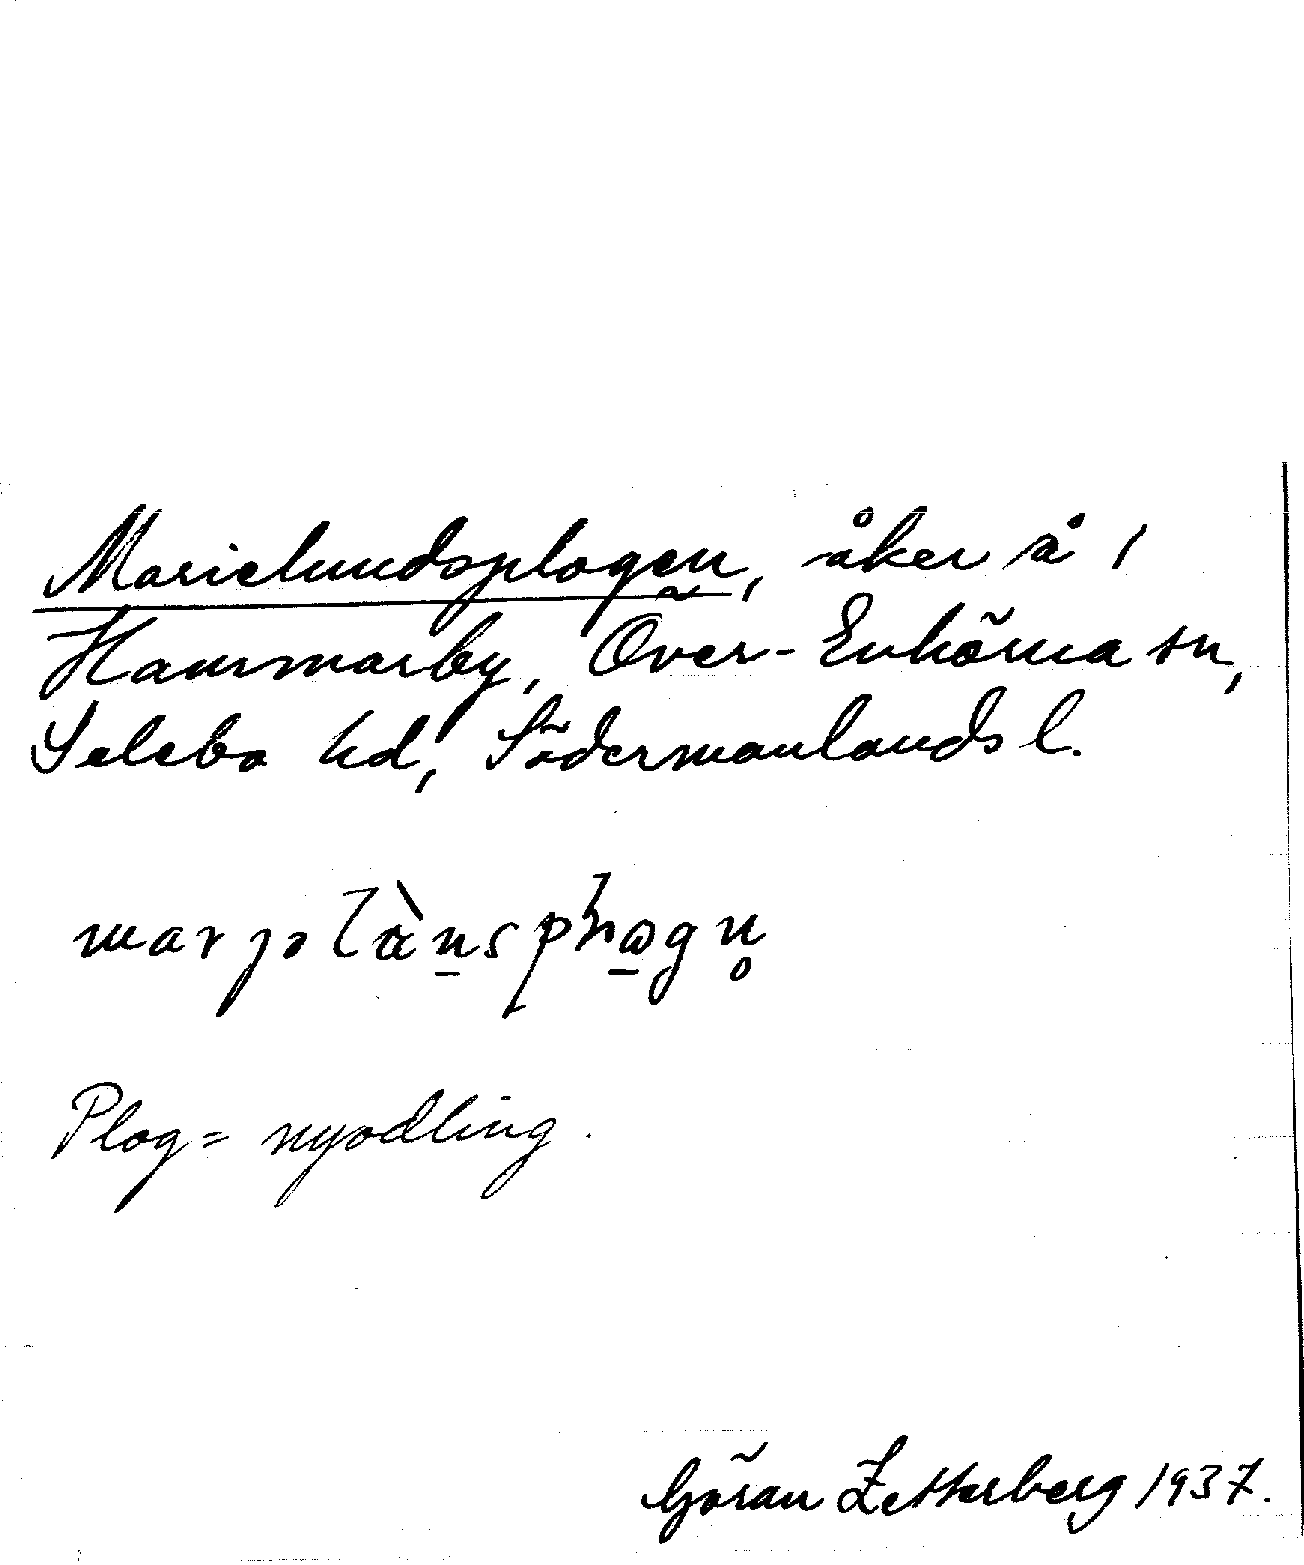 Marielundsplogen, åker å 1
Hammarby, Över-Enhörna sn,
Selebo hd, Södermanlands l.
Plog = nyodling.
Göran Zetterberg 1937.